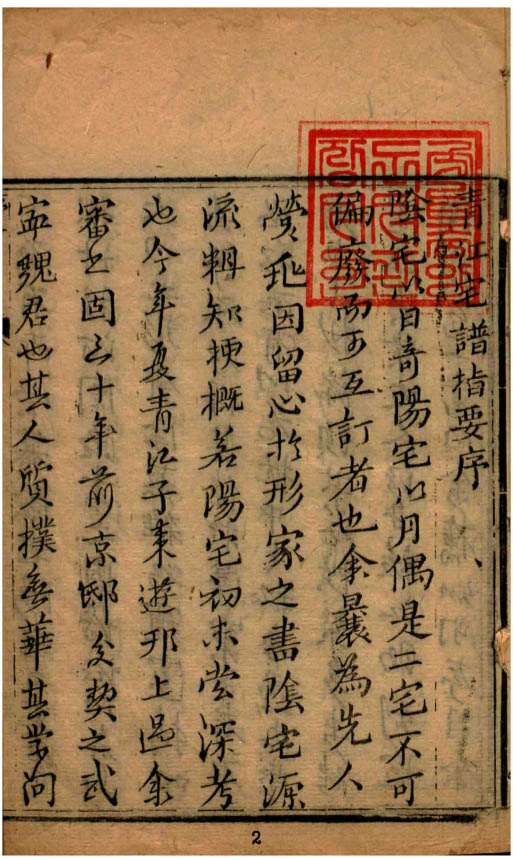 青江宅譜指要序
陰宅以首奇陽宅以月偶是二宅不可
偏廢而可互訂者也余曩為先人
塋兆因留心於形家之書陰宅源
流輯知梗概若陽宅初未尝深考
也今年夏青江子来遊邗上過余
審之固三十年前京邸交契之武
寧魏君也其人質撲無華其学问
2